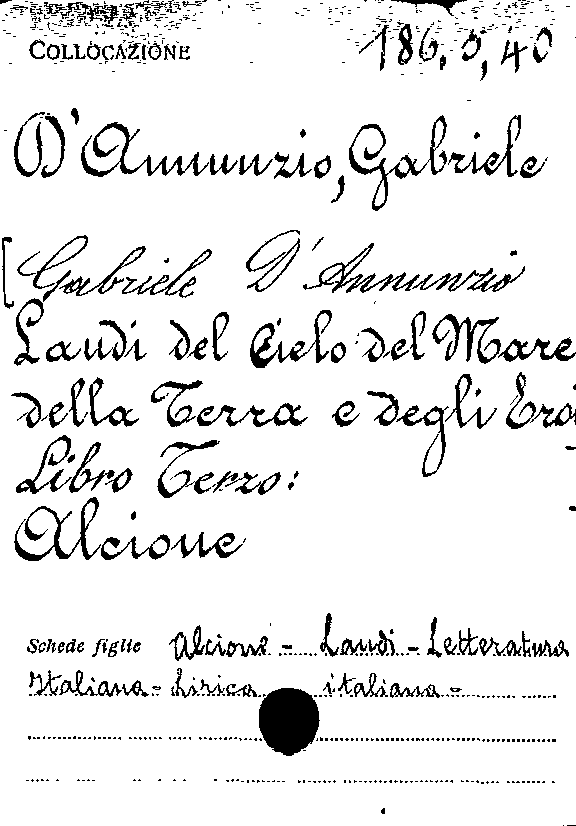 COLLOCAZIONE 186, 0, 40
D'Annunzio, Gabriele
[Gabriele D'Annunzio
Laudi del Cielo del Mare
della Terra e degli Eroi
Libro Terzo:
Alcione
Schede figlie Alcione - Laudi - Letteratura
Italiana - Lirica italiana -